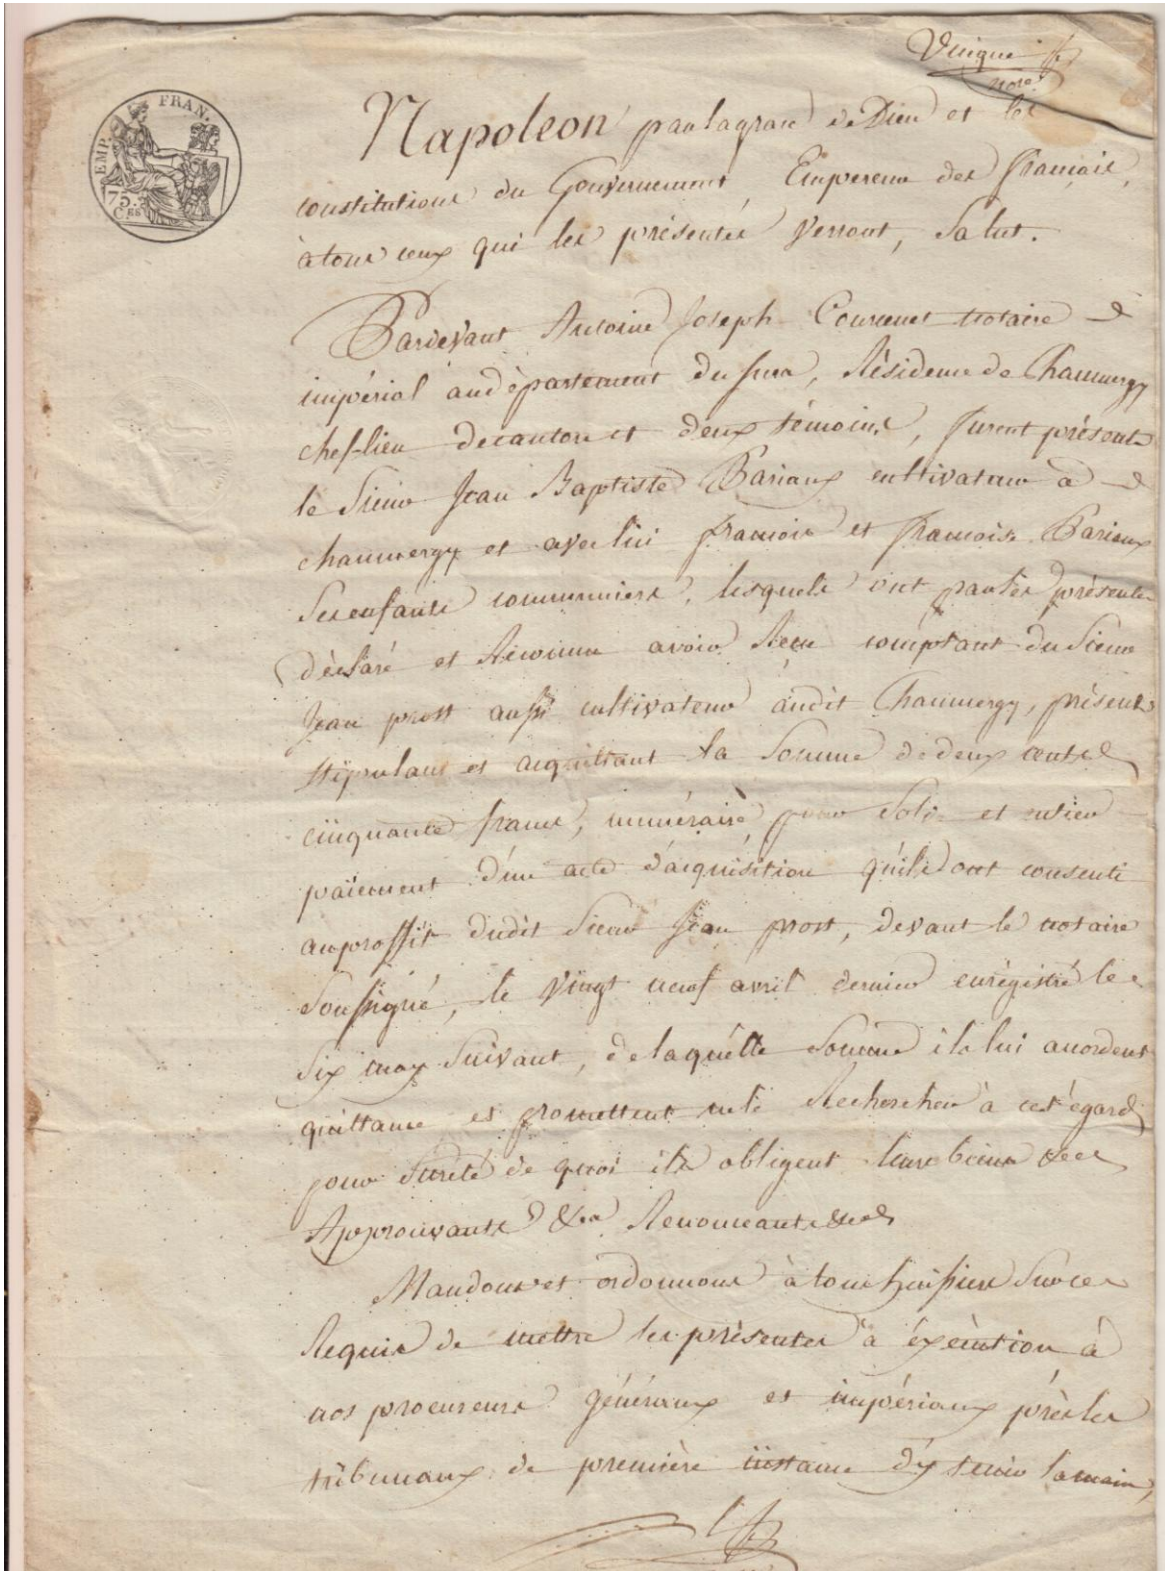 EMP. FRAN.
75.
Ces
Napoleon par la grace de Dieu et les
constitutions du Gouvernement Empereur des français,
à tous ceux qui les présentes verront, Salut.
Pardevant Antoine Joseph notaire
impérial au département du jura, Résidence de Chaumergy
chef-lieu de canton et deux témoins, furent présents
le Sieur Jean Baptiste Bariaux cultivateur à
chaumergy et avec lui francois et francoise Bariaux
Ses enfants communiers, lesquels ont par les présentes
déclaré et Reconnu avoir Recu comptant du Sieur
Jean prost aussi cultivateur audit Chaumergy, présent
stipulant et acquittant la Somme de deux cents
cinquante francs, numéraire, pour Solde et entier
païement d'un acte d'acquisition qu'ils ont consenti
au proffit dudit Sieur Jean prost, devant le notaire
Soussigné, le vingt neuf avril dernier enrégistré le
Six may Suivant, de laquélle Somme ils lui accordent
quittance et promettent nulle Rechercher à cet égard
pour Sureté de quoi ils obligent leurs biens &ca
Approuvants &ca Renonceants &ca
Mandons et ordonnons à tous huissiers Sur ce
Requis de mettre les présentes à éxécution à
nos procureurs généraux et impériaux près les
tribunaux de première instance d'y tenir la main,